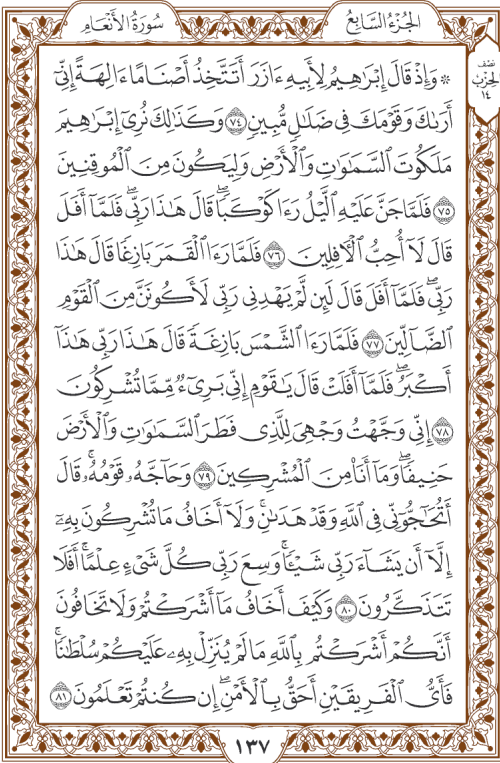 الجُزْءُ السَّابِعُ
سُورَةُ الأَنْعَامِ
نصف
الحزب
١٤
۞ وَإِذْ قَالَ إِبْرَٰهِيمُ لِأَبِيهِ ءَازَرَ أَتَتَّخِذُ أَصْنَامًا ءَالِهَةً إِنِّىٓ
أَرَىٰكَ وَقَوْمَكَ فِى ضَلَٰلٍ مُّبِينٍ ٧٤ وَكَذَٰلِكَ نُرِىٓ إِبْرَٰهِيمَ
مَلَكُوتَ السَّمَٰوَٰتِ وَالْأَرْضِ وَلِيَكُونَ مِنَ الْمُوقِنِينَ
٧٥ فَلَمَّا جَنَّ عَلَيْهِ الَّيْلُ رَءَا كَوْكَبًا ۖ قَالَ هَٰذَا رَبِّى ۖ فَلَمَّآ أَفَلَ
قَالَ لَآ أُحِبُّ الْءَافِلِينَ ٧٦ فَلَمَّا رَءَا الْقَمَرَ بَازِغًا قَالَ هَٰذَا
رَبِّى ۖ فَلَمَّآ أَفَلَ قَالَ لَئِن لَّمْ يَهْدِنِى رَبِّى لَأَكُونَنَّ مِنَ الْقَوْمِ
الضَّآلِّينَ ٧٧ فَلَمَّا رَءَا الشَّمْسَ بَازِغَةً قَالَ هَٰذَا رَبِّى هَٰذَآ
أَكْبَرُ ۖ فَلَمَّآ أَفَلَتْ قَالَ يَٰقَوْمِ إِنِّى بَرِىٓءٌ مِّمَّا تُشْرِكُونَ
٧٨ إِنِّى وَجَّهْتُ وَجْهِىَ لِلَّذِى فَطَرَ السَّمَٰوَٰتِ وَالْأَرْضَ
حَنِيفًا ۖ وَمَآ أَنَا۠ مِنَ الْمُشْرِكِينَ ٧٩ وَحَآجَّهُۥ قَوْمُهُۥ ۚ قَالَ
أَتُحَٰٓجُّوٓنِّى فِى اللَّهِ وَقَدْ هَدَىٰنِ ۚ وَلَآ أَخَافُ مَا تُشْرِكُونَ بِهِۦٓ
إِلَّآ أَن يَشَآءَ رَبِّى شَيْـًٔا ۗ وَسِعَ رَبِّى كُلَّ شَىْءٍ عِلْمًا ۗ أَفَلَا
تَتَذَكَّرُونَ ٨٠ وَكَيْفَ أَخَافُ مَآ أَشْرَكْتُمْ وَلَا تَخَافُونَ
أَنَّكُمْ أَشْرَكْتُم بِاللَّهِ مَا لَمْ يُنَزِّلْ بِهِۦ عَلَيْكُمْ سُلْطَٰنًا ۚ
فَأَىُّ الْفَرِيقَيْنِ أَحَقُّ بِالْأَمْنِ ۖ إِن كُنتُمْ تَعْلَمُونَ ٨١
١٣٧